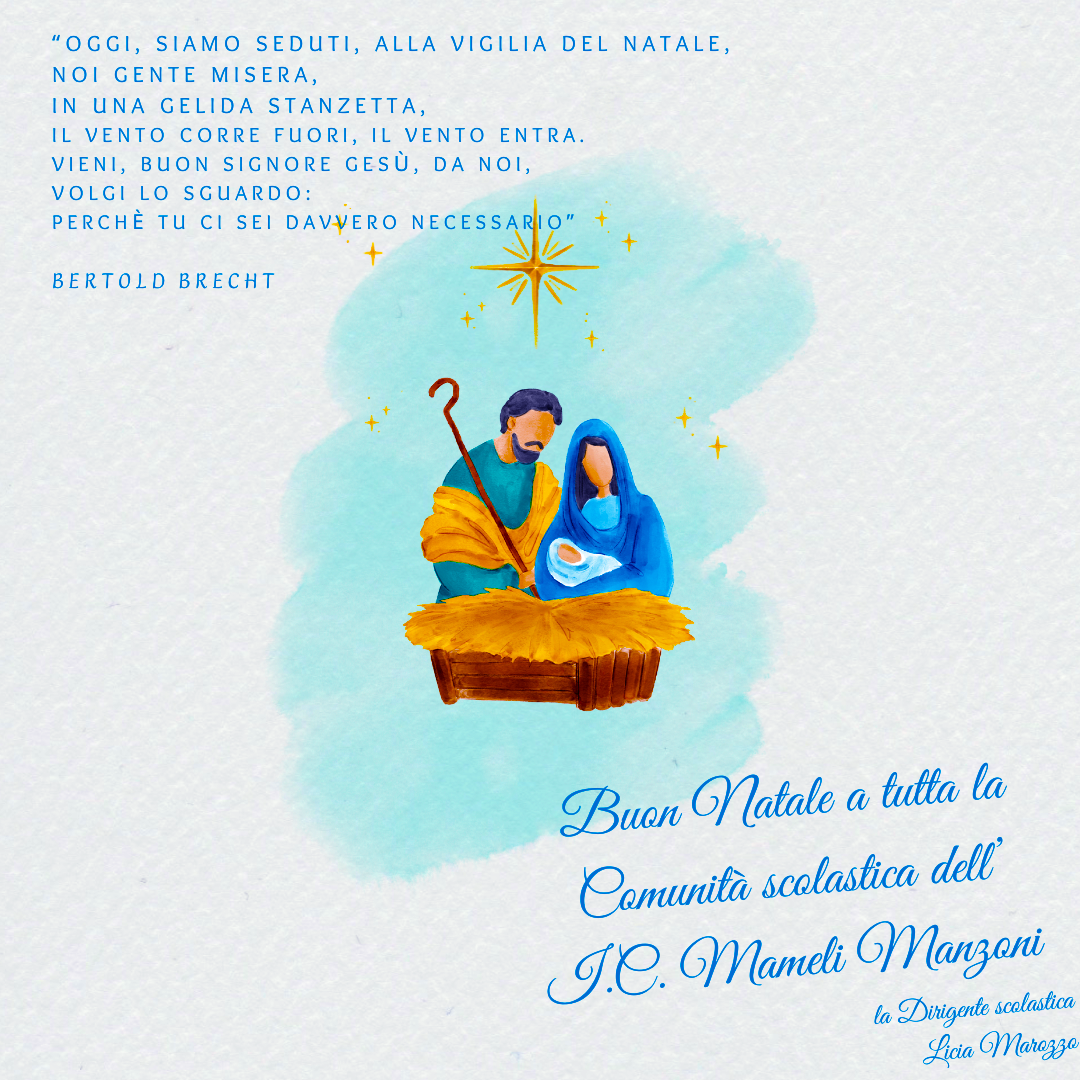 “OGGI, SIAMO SEDUTI, ALLA VIGILIA DEL NATALE,
NOI GENTE MISERA,
IN UNA GELIDA STANZETTA,
IL VENTO CORRE FUORI, IL VENTO ENTRA.
VIENI, BUON SIGNORE GESÙ, DA NOI,
VOLGI LO SGUARDO:
PERCHÈ TU CI SEI DAVVERO NECESSARIO”
BERTOLD BRECHT
Buon Natale a tutta la
Comunità scolastica dell’
I.C. Mameli Manzoni
la Dirigente scolastica
Licia Marozzo